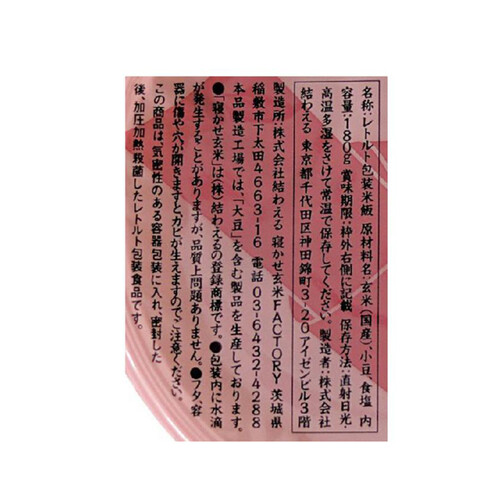 名称:レトルト包装米飯 原材料名:玄米(国産)、小豆、食塩 内
容量:180g 賞味期限:枠外右側に記載 保存方法:直射日光・
高温多湿をさけて常温で保存してください。製造者:株式会社
結わえる 東京都千代田区神田錦町3-20アイゼンビル3階
製造所:株式会社結わえる 寝かせ玄米FACTORY 茨城県
稲敷市下太田4663-16 電話 03-6432-4288
本品製造工場では、「大豆」を含む製品を生産しております。
●「寝かせ玄米」は(株)結わえるの登録商標です。●包装内に水滴
が発生することがありますが、品質上問題ありません。●フタ、容
器に傷や穴が開きますと、カビが生えますのでご注意ください。
この商品は、気密性のある容器包装に入れ、密封した
後、加圧加熱殺菌したレトルト包装食品です。